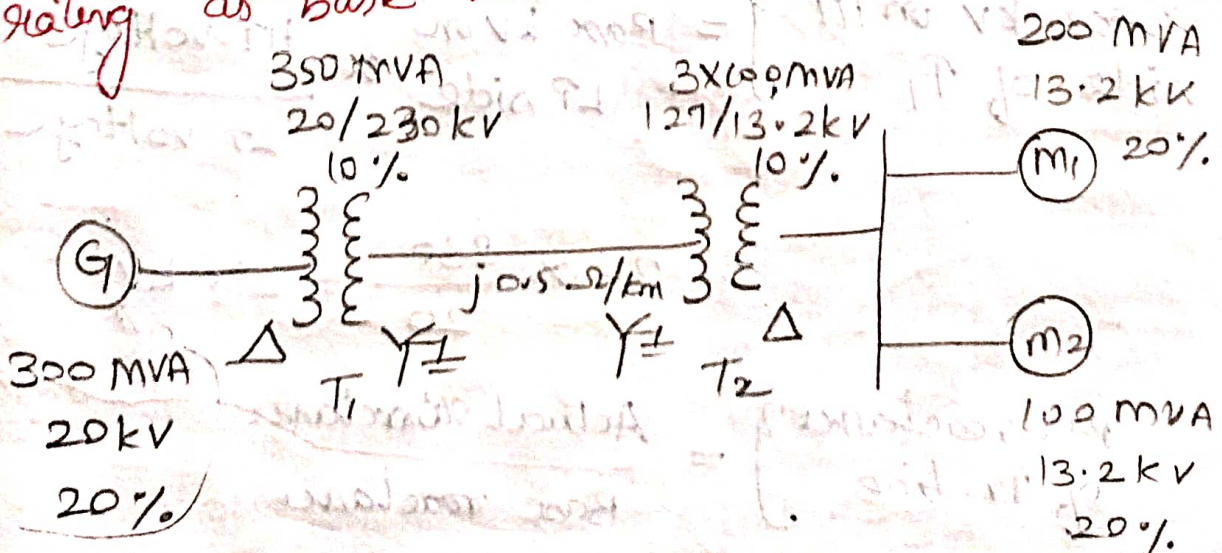 rating as base
350 MVA
20/230 kV
10 %.
3X100 MVA
127/13.2kV
10 %.
200 MVA
13.2 kV
20 %.
M1
G
j0.5 Ω/km
Δ
Y
T1
Y
T2
Δ
300 MVA
20kV
20 %.
M2
100 MVA
13.2 kV
20 %.